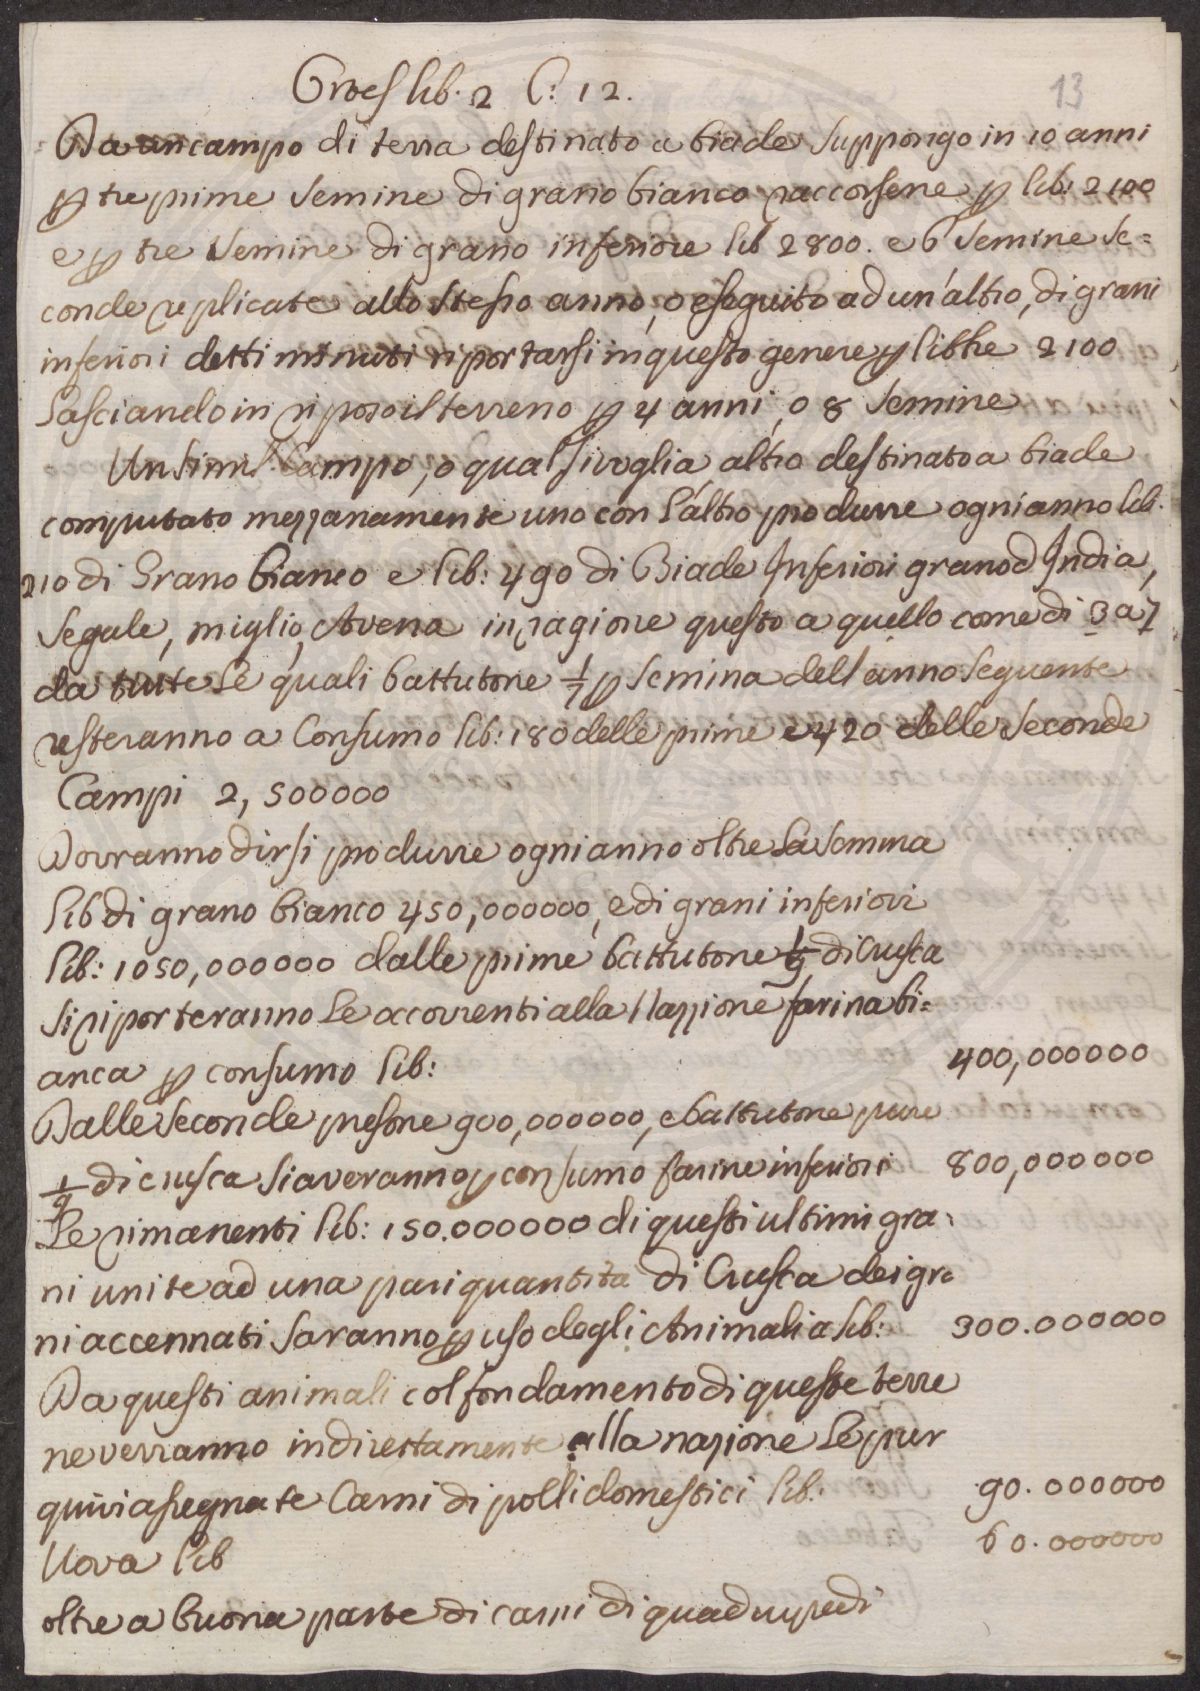 Ortes lib. 2 C. 12. 13
Da un campo di terra destinato a biade suppongo in 10 anni
p tre prime semine di grano bianco raccorsene p lib: 2100
e p tre semine di grano inferiore lib 2800. e 6 semine se=
conde replicate allo stesso anno, o eseguito ad un'altro, di grani
inferiori detti minuti riportarsi in questo genere p libre 2100
Lasciando in riposo il terreno p 4 anni, o 8 semine
Un simil Campo, o qual sivoglia altro destinato a biade
computato mezzanamente uno con l'altro produrre ogni anno lib.
210 di Grano bianco e lib: 490 di Biade Inferiori grano d India,
Segale, miglio, Avena in ragione questo a quello come di 3 a 7
da tutte le quali battutone 1/7 p semina dell anno seguente
resteranno a Consumo lib: 180 delle prime e 420 delle seconde
Campi 2,500000
Dovranno dirsi produrre ogni anno oltre la semina
lib di grano bianco 450,000000, e di grani inferiori
lib: 1050,000000 dalle prime battutone 1/9 di Crusca
si riporteranno le accorrenti alla Nazzione farina bi=
anca p consumo lib: 400,000000
Dalle seconde presone 900,000000, e battutone pure
1/9 di crusca si averanno p consumo farine inferiori 800,000000
Le rimanenti lib: 150.000000 di questi ultimi gra=
ni unite ad una pari quantità di Crusca dei gra
ni accennati saranno p uso degli Animali a lib: 300.000000
Da questi animali col fondamento di queste terre
ne verranno indirettamente alla nazione le pur
quivi assegnate Carni di polli domestici lib: 90.000000
Uova lib 60.000000
oltre a buona parte di carni di quadrupedi